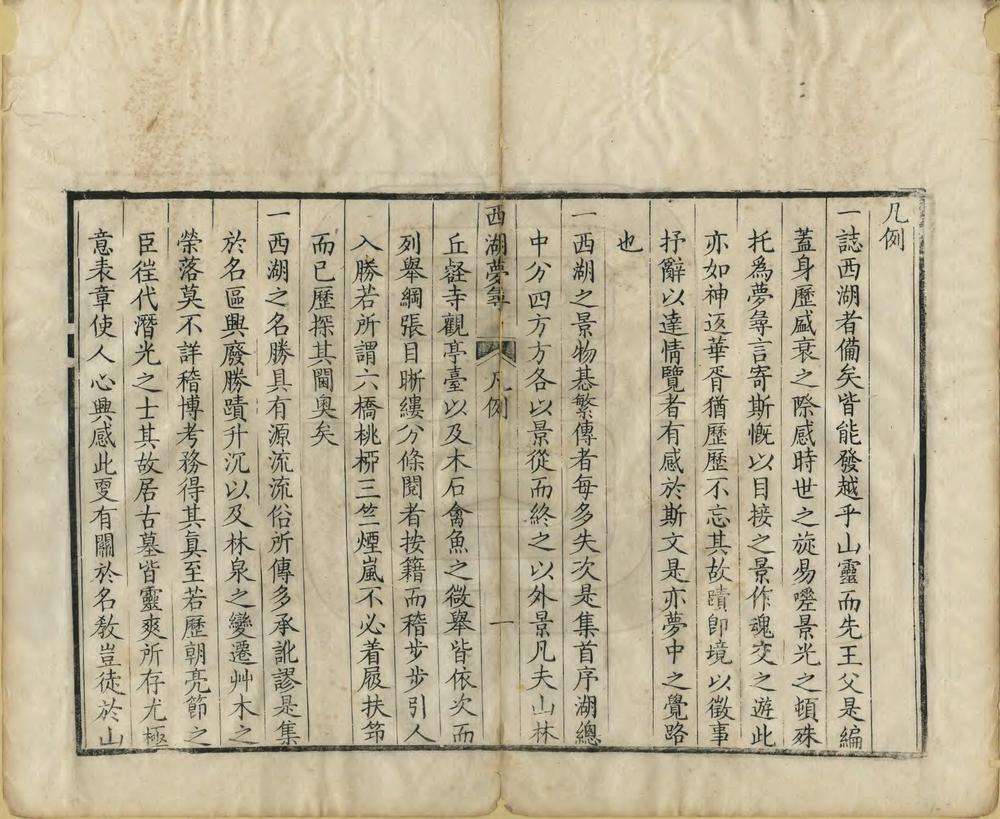 凡例
一誌西湖者備矣皆能發越乎山靈而先王父是編
蓋身歷盛衰之際感時世之旋易嘐景光之頓殊
托為夢尋言寄斯慨以目接之景作魂交之遊此
亦如神返華胥猶歷歷不忘其故蹟即境以徵事
抒辭以達情覽者有感於斯文是亦夢中之覺路
也
一西湖之景物綦繁傳者每多失次是集首序湖總
中分四方方各以景從而終之以外景凡夫山林
西湖夢尋 凡例 一
丘壑寺觀亭臺以及木石禽魚之微舉皆依次而
列舉綱張目晰縷分條閱者按籍而稽步步引人
入勝若所謂六橋桃桺三竺煙嵐不必着屐扶筇
而已歷探其閫奧矣
一西湖之名勝具有源流流俗所傳多承訛謬是集
於名區興廢勝蹟升沉以及林泉之變遷艸木之
榮落莫不詳稽博考務得其眞至若歷朝亮節之
臣徃代潛光之士其故居古墓皆靈爽所存尤極
意表章使人心興感此更有關於名教豈徒於山